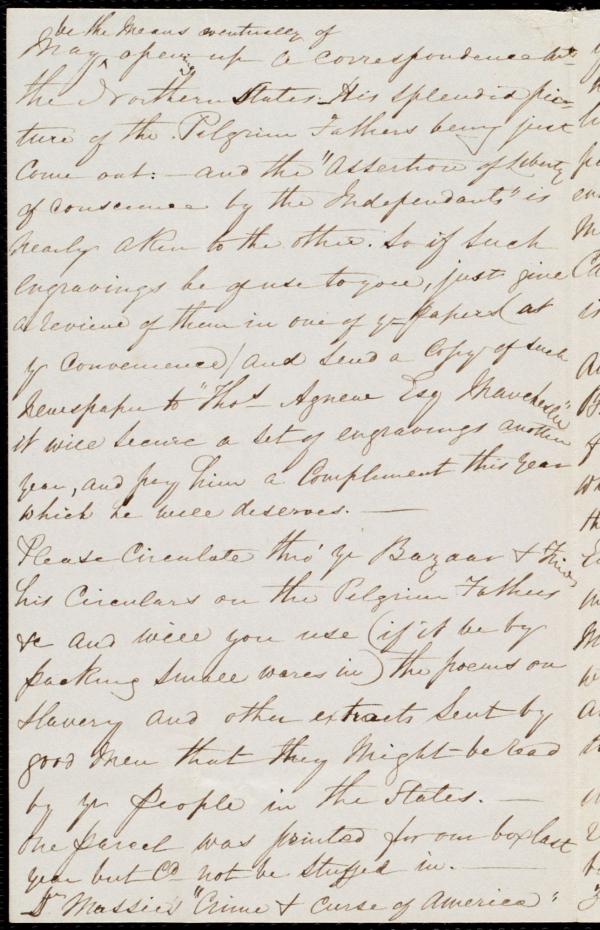 be the means eventually of
May ^ opening up a correspondence wt
the Northern States. His splendid pic-
ture of the Pilgrim Fathers being just
Come out: - and the "Assertion of Liberty
of conscience by the Independants" is
nearly aken to the other. So if such
engravings be of use to you, just give
a review of them in one of yr papers (at
yr convenience) and send a Copy of such
Newspaper to "Thos Agnew Esq Manchester"
it will secure a set of engravings another
year, and pay him a Compliment this year
which he well deserves. —
Please Circulate thro' yr Bazaar &
his Circulars on the Pilgrim Fathers
&c and will you use (if it be by
packing small wares in) the poems on
slavery and other extracts sent by
good men that they might be read
by yr people in the States. —
One parcel was printed for our box last
year but Cd not be stuffed in. —
Dr Massie's "Crime & Curse of America"